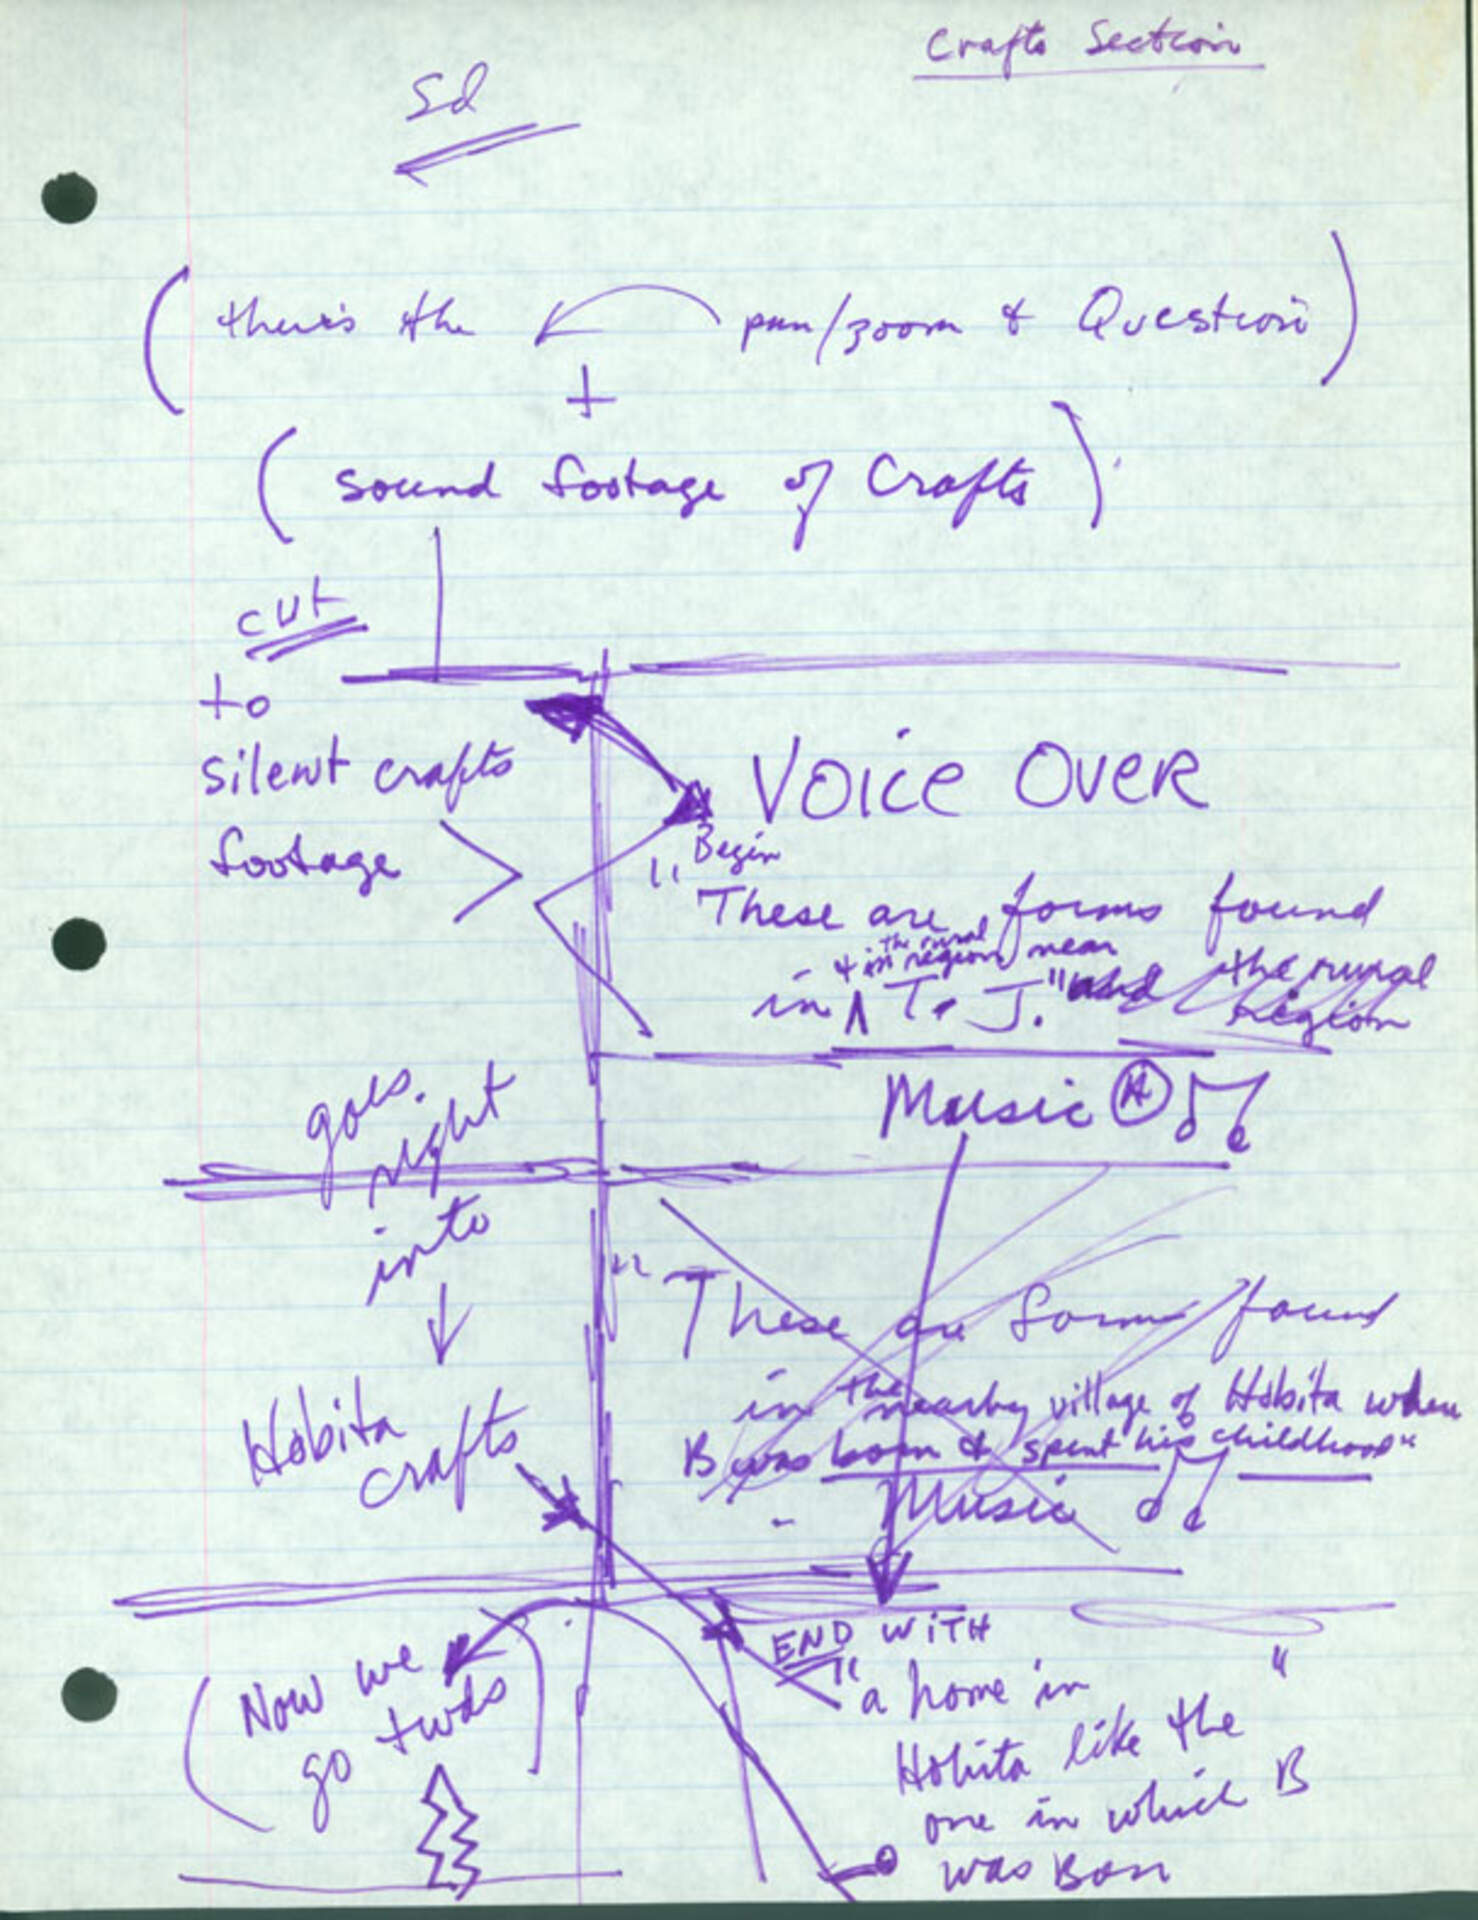 Crafts Section
Sd
(there's the pan/zoom & Question)
+
(sound footage of Crafts)
cut
to
silent crafts
footage
Voice Over
Begin
"These are forms found
& in the rural region near
in T. J." and the rural
region
goes
right
into
Music
"These are forms found
in the nearby village of Hobita where
B was born & spent his childhood"
Music
Hobita
crafts
(Now we
go twds)
END WITH
"a home in
Hobita like the "
one in which B
was Born